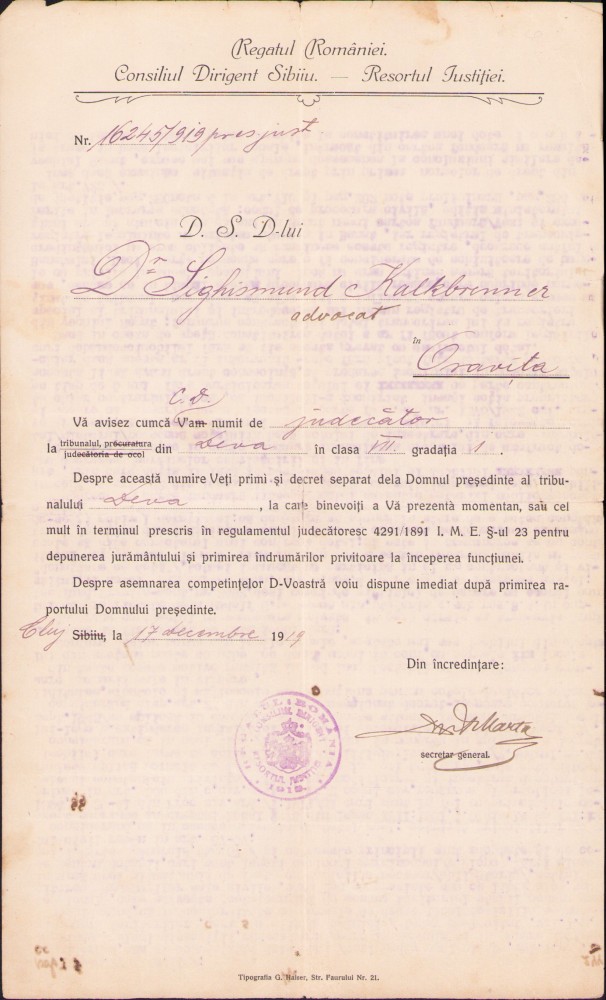 Regatul României.
Consiliul Dirigent Sibiiu. — Resortul Justiției.
Nr. 16245/919 pres. just.
D. S. D-lui
Dr Sighismund Kalkbrenner
advocat
în
Oravița
C. D.
Vă avisez cumcă V'am numit de judecător
la tribunalul, procuratura
judecătoria de ocol din Deva în clasa VII. gradația 1.
Despre această numire Veți primì și decret separat dela Domnul președinte al tribu-
nalului Deva, la care binevoiți a Vă prezentà momentan, sau cel
mult în terminul prescris în regulamentul judecătoresc 4291/1891 I. M. E. §-ul 23 pentru
depunerea jurământului și primirea îndrumărilor privitoare la începerea funcțiunei.
Despre asemnarea competințelor D-Voastră voiu dispune imediat după primirea ra-
portului Domnului președinte.
Cluj Sibiiu, la 17 decembre 1919
Din încredințare:
secretar general.
REGATUL ROMÂNIA
CONSILIUL DIRIGENT
RESORTUL JUSTIȚIEI
1919.
Tipografia G. Haiser, Str. Faurului Nr. 21.